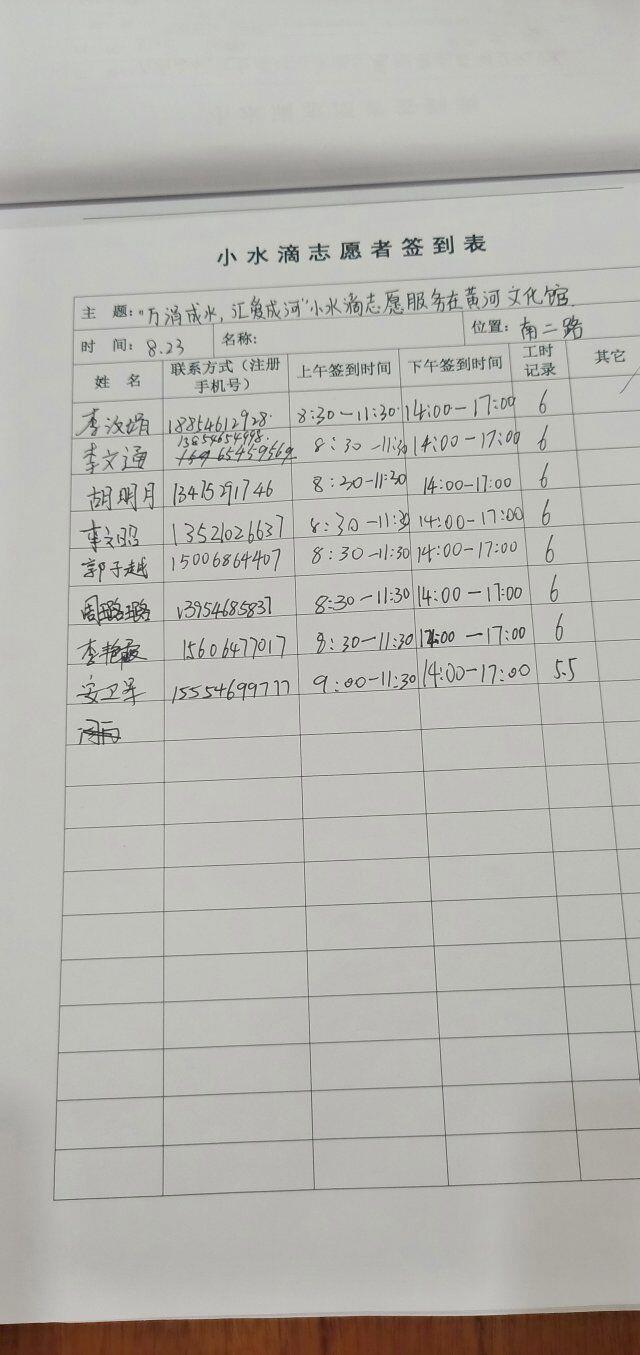 小水滴志愿者签到表
主 题：“万涓成水，汇爱成河”小水滴志愿服务在黄河文化馆
时 间：8.23 名称： 位置：南二路
姓 名 联系方式（注册手机号） 上午签到时间 下午签到时间 工时记录 其它
李汝娟 18854612928 8:30-11:30 14:00-17:00 6
李文通 13854654998 8:30-11:30 14:00-17:00 6
胡明月 13475291746 8:20-11:30 14:00-17:00 6
李文昭 13521026637 8:30-11:30 14:00-17:00 6
郭子越 15006864407 8:30-11:30 14:00-17:00 6
周璐璐 13954685837 8:30-11:30 14:00-17:00 6
李艳霞 15606477017 8:30-11:30 14:00-17:00 6
安卫华 15554699777 9:00-11:30 14:00-17:00 5.5